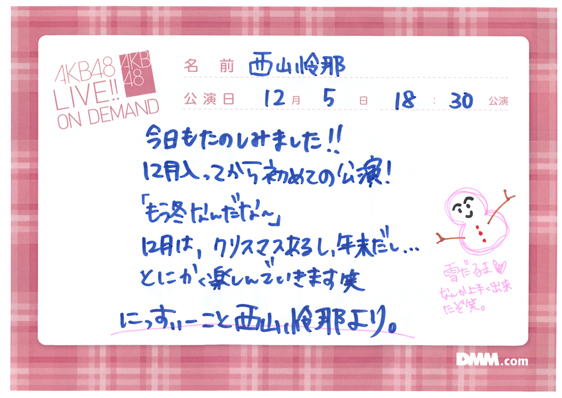 AKB48
LIVE!!
ON DEMAND
AKB
48
名前 西山怜那
公演日 12月 5日 18:30公演
今日もたのしみました!!
12月入ってから初めての公演!
「もう冬なんだな〜」
12月は、クリスマスあるし、年末だし…
とにかく楽しんでいきます笑
にっすぃーこと西山怜那より。
雪だるま
なんか上手く出来
たぞ笑。
DMM.com